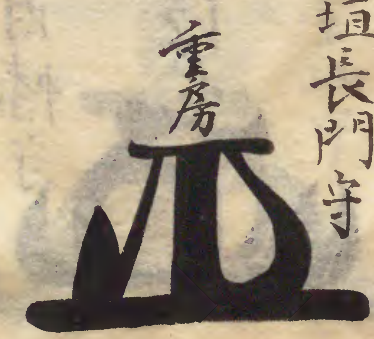 垣長門守
重房